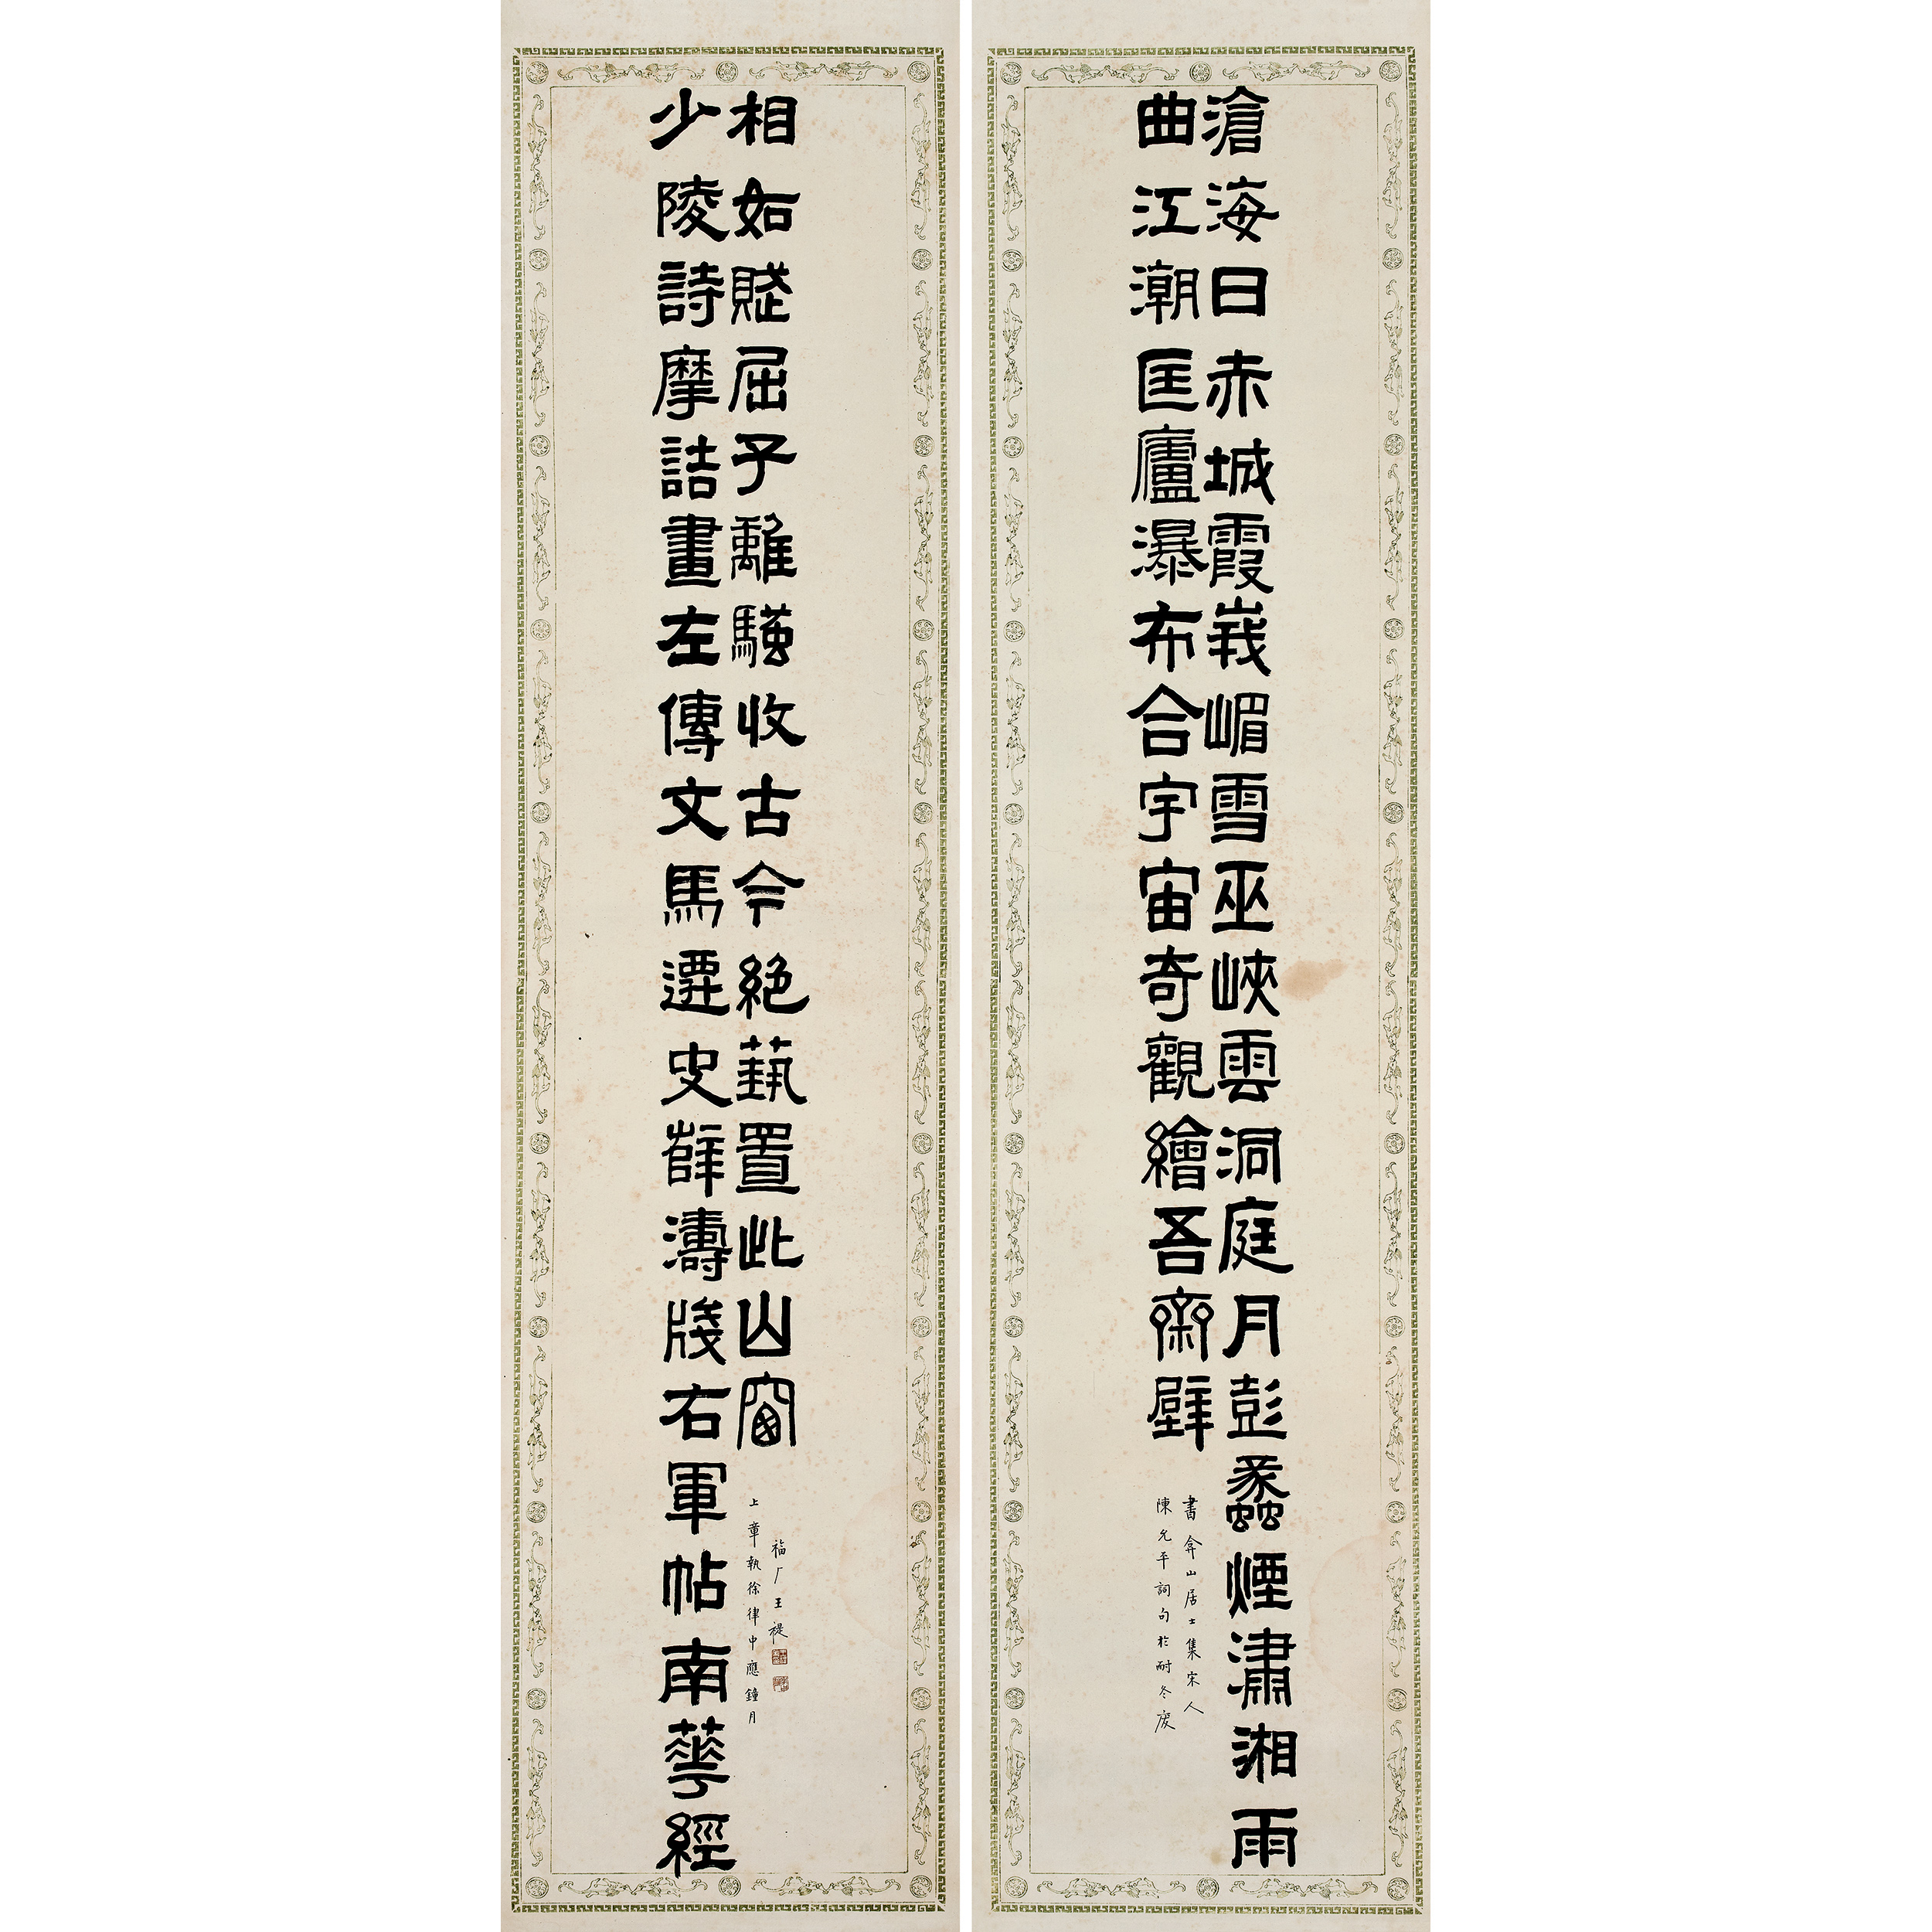 滄海日赤城霞峩嵋雪巫峽雲洞庭月彭蠡煙潚湘雨
曲江潮匡廬瀑布合宇宙奇觀繪吾齋壁
書弇山居士集宋人
陳允平詞句於耐冬廎
少陵詩摩詰畫左傳文馬遷史薛濤牋右軍帖南華經
相如賦屈子離騷收古今絕藝置此山窗
上章執徐律中應鐘月
福厂王禔